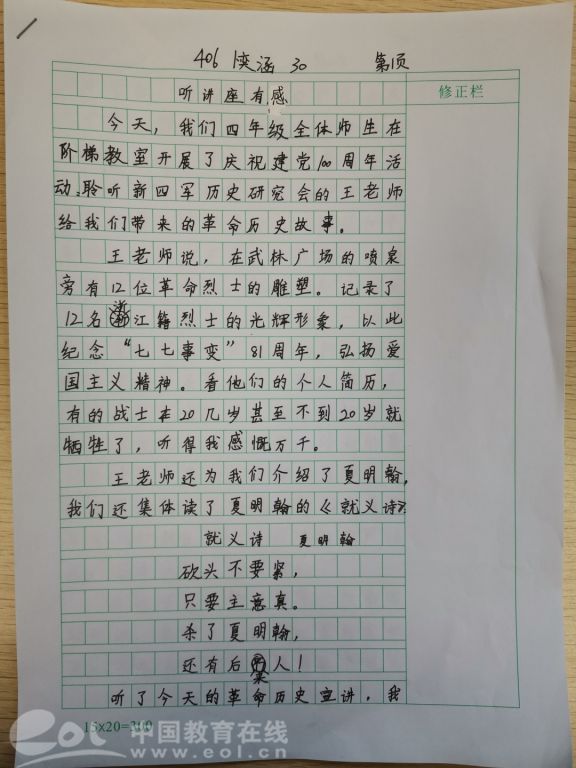 406 陕涵 30 第1页
听讲座有感
修正栏
今天，我们四年级全体师生在
阶梯教室开展了庆祝建党100周年活
动，聆听新四军历史研究会的王老师
给我们带来的革命历史故事。
王老师说，在武林广场的喷泉
旁有12位革命烈士的雕塑。记录了
12名浙江籍烈士的光辉形象，以此
纪念“七七事变”81周年，弘扬爱
国主义精神。看他们的个人简历，
有的战士在20几岁甚至不到20岁就
牺牲了，听得我感慨万千。
王老师还为我们介绍了夏明翰，
我们还集体读了夏明翰的《就义诗》
就义诗 夏明翰
砍头不要紧，
只要主意真。
杀了夏明翰，
还有后来人！
听了今天的革命历史宣讲，我
15×20=300
eol 中国教育在线
www.eol.cn